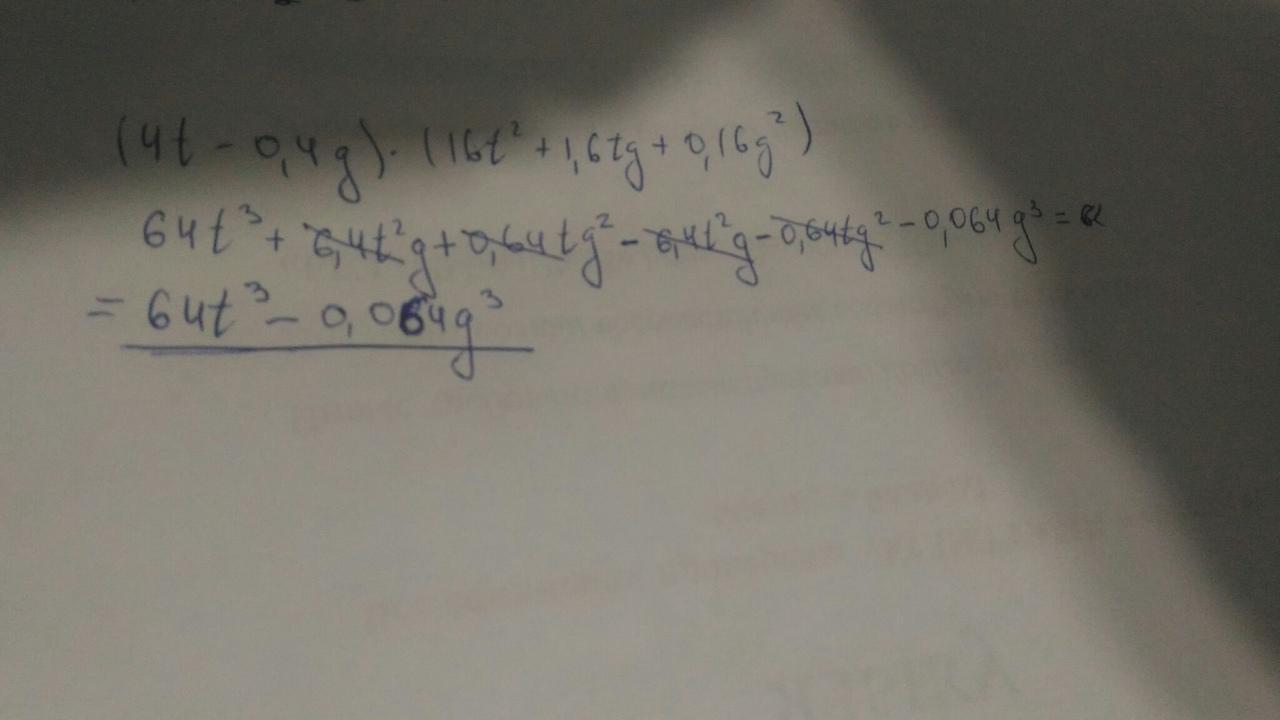 (4t - 0,4g) · (16t² + 1,6tg + 0,16g²)
64t³ + 6,4t²g + 0,64tg² - 6,4t²g - 0,64tg² - 0,064g³ =
= 64t³ - 0,064g³